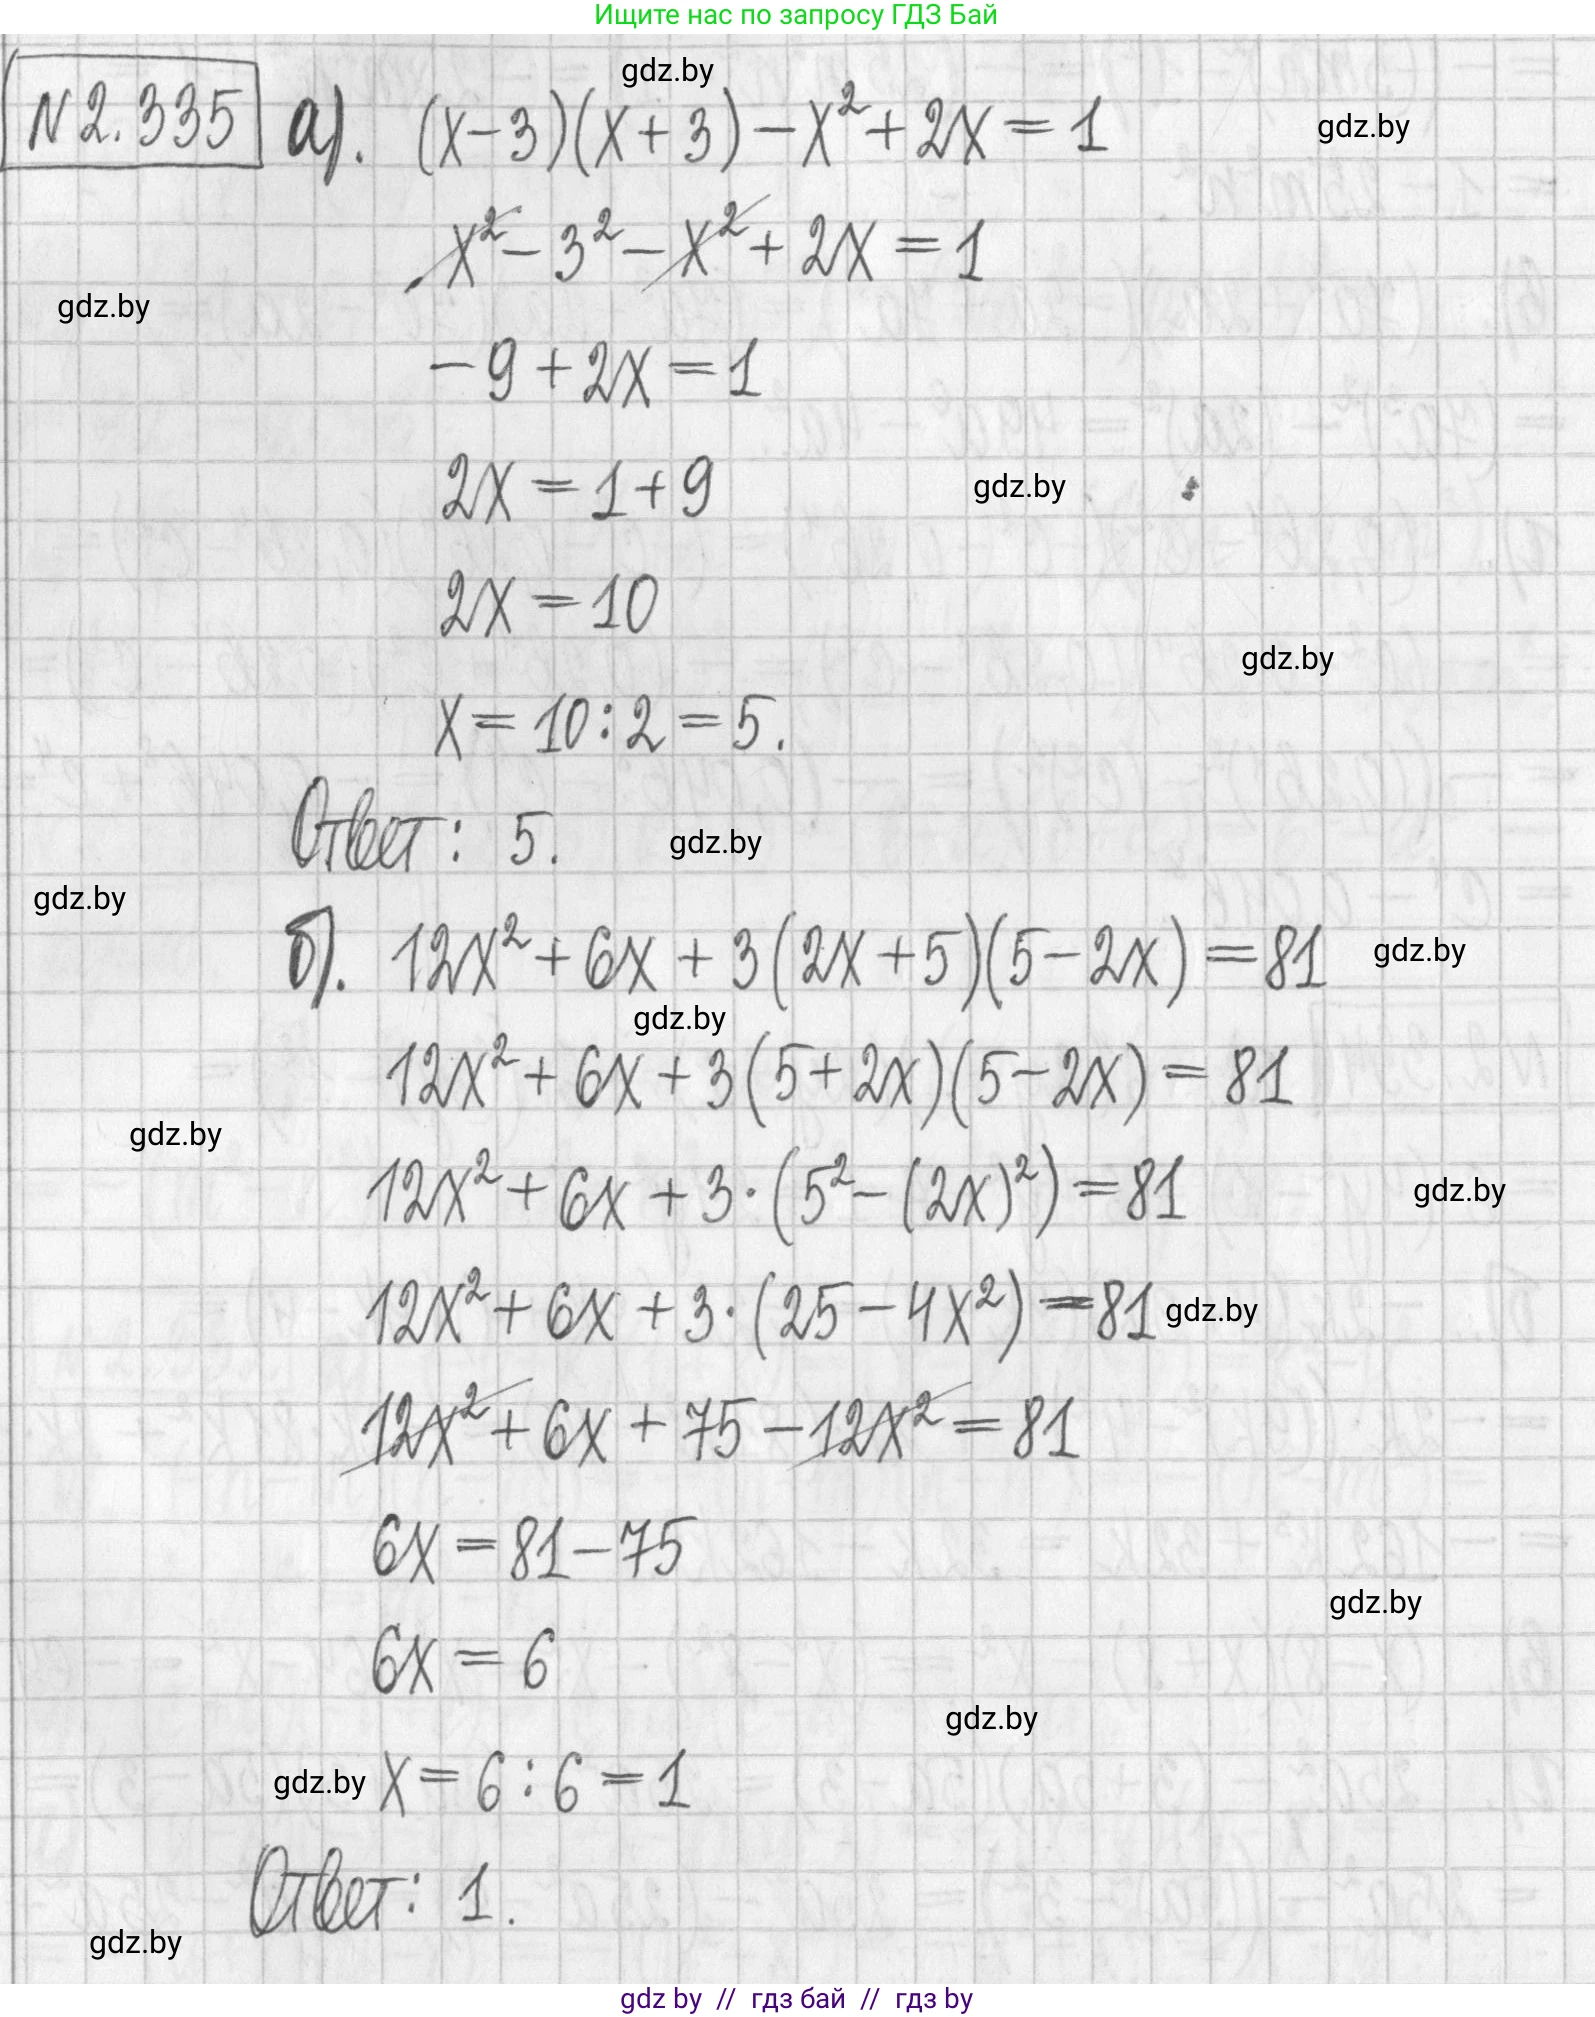 Ищите нас по запросу ГДЗ Бай
gdz.by
№2.335 а). (x-3)(x+3)-x²+2x=1
gdz.by
x²-3²-x²+2x=1
gdz.by
-9+2x=1
2x=1+9
gdz.by
2x=10
gdz.by
x=10:2=5.
Ответ: 5.
gdz.by
gdz.by
б). 12x²+6x+3(2x+5)(5-2x)=81
gdz.by
gdz.by
12x²+6x+3(5+2x)(5-2x)=81
gdz.by
12x²+6x+3·(5²-(2x)²)=81
gdz.by
12x²+6x+3·(25-4x²)=81
gdz.by
12x²+6x+75-12x²=81
6x=81-75
gdz.by
6x=6
gdz.by
gdz.by
x=6:6=1
Ответ: 1.
gdz.by
gdz by // гдз бай // гдз by